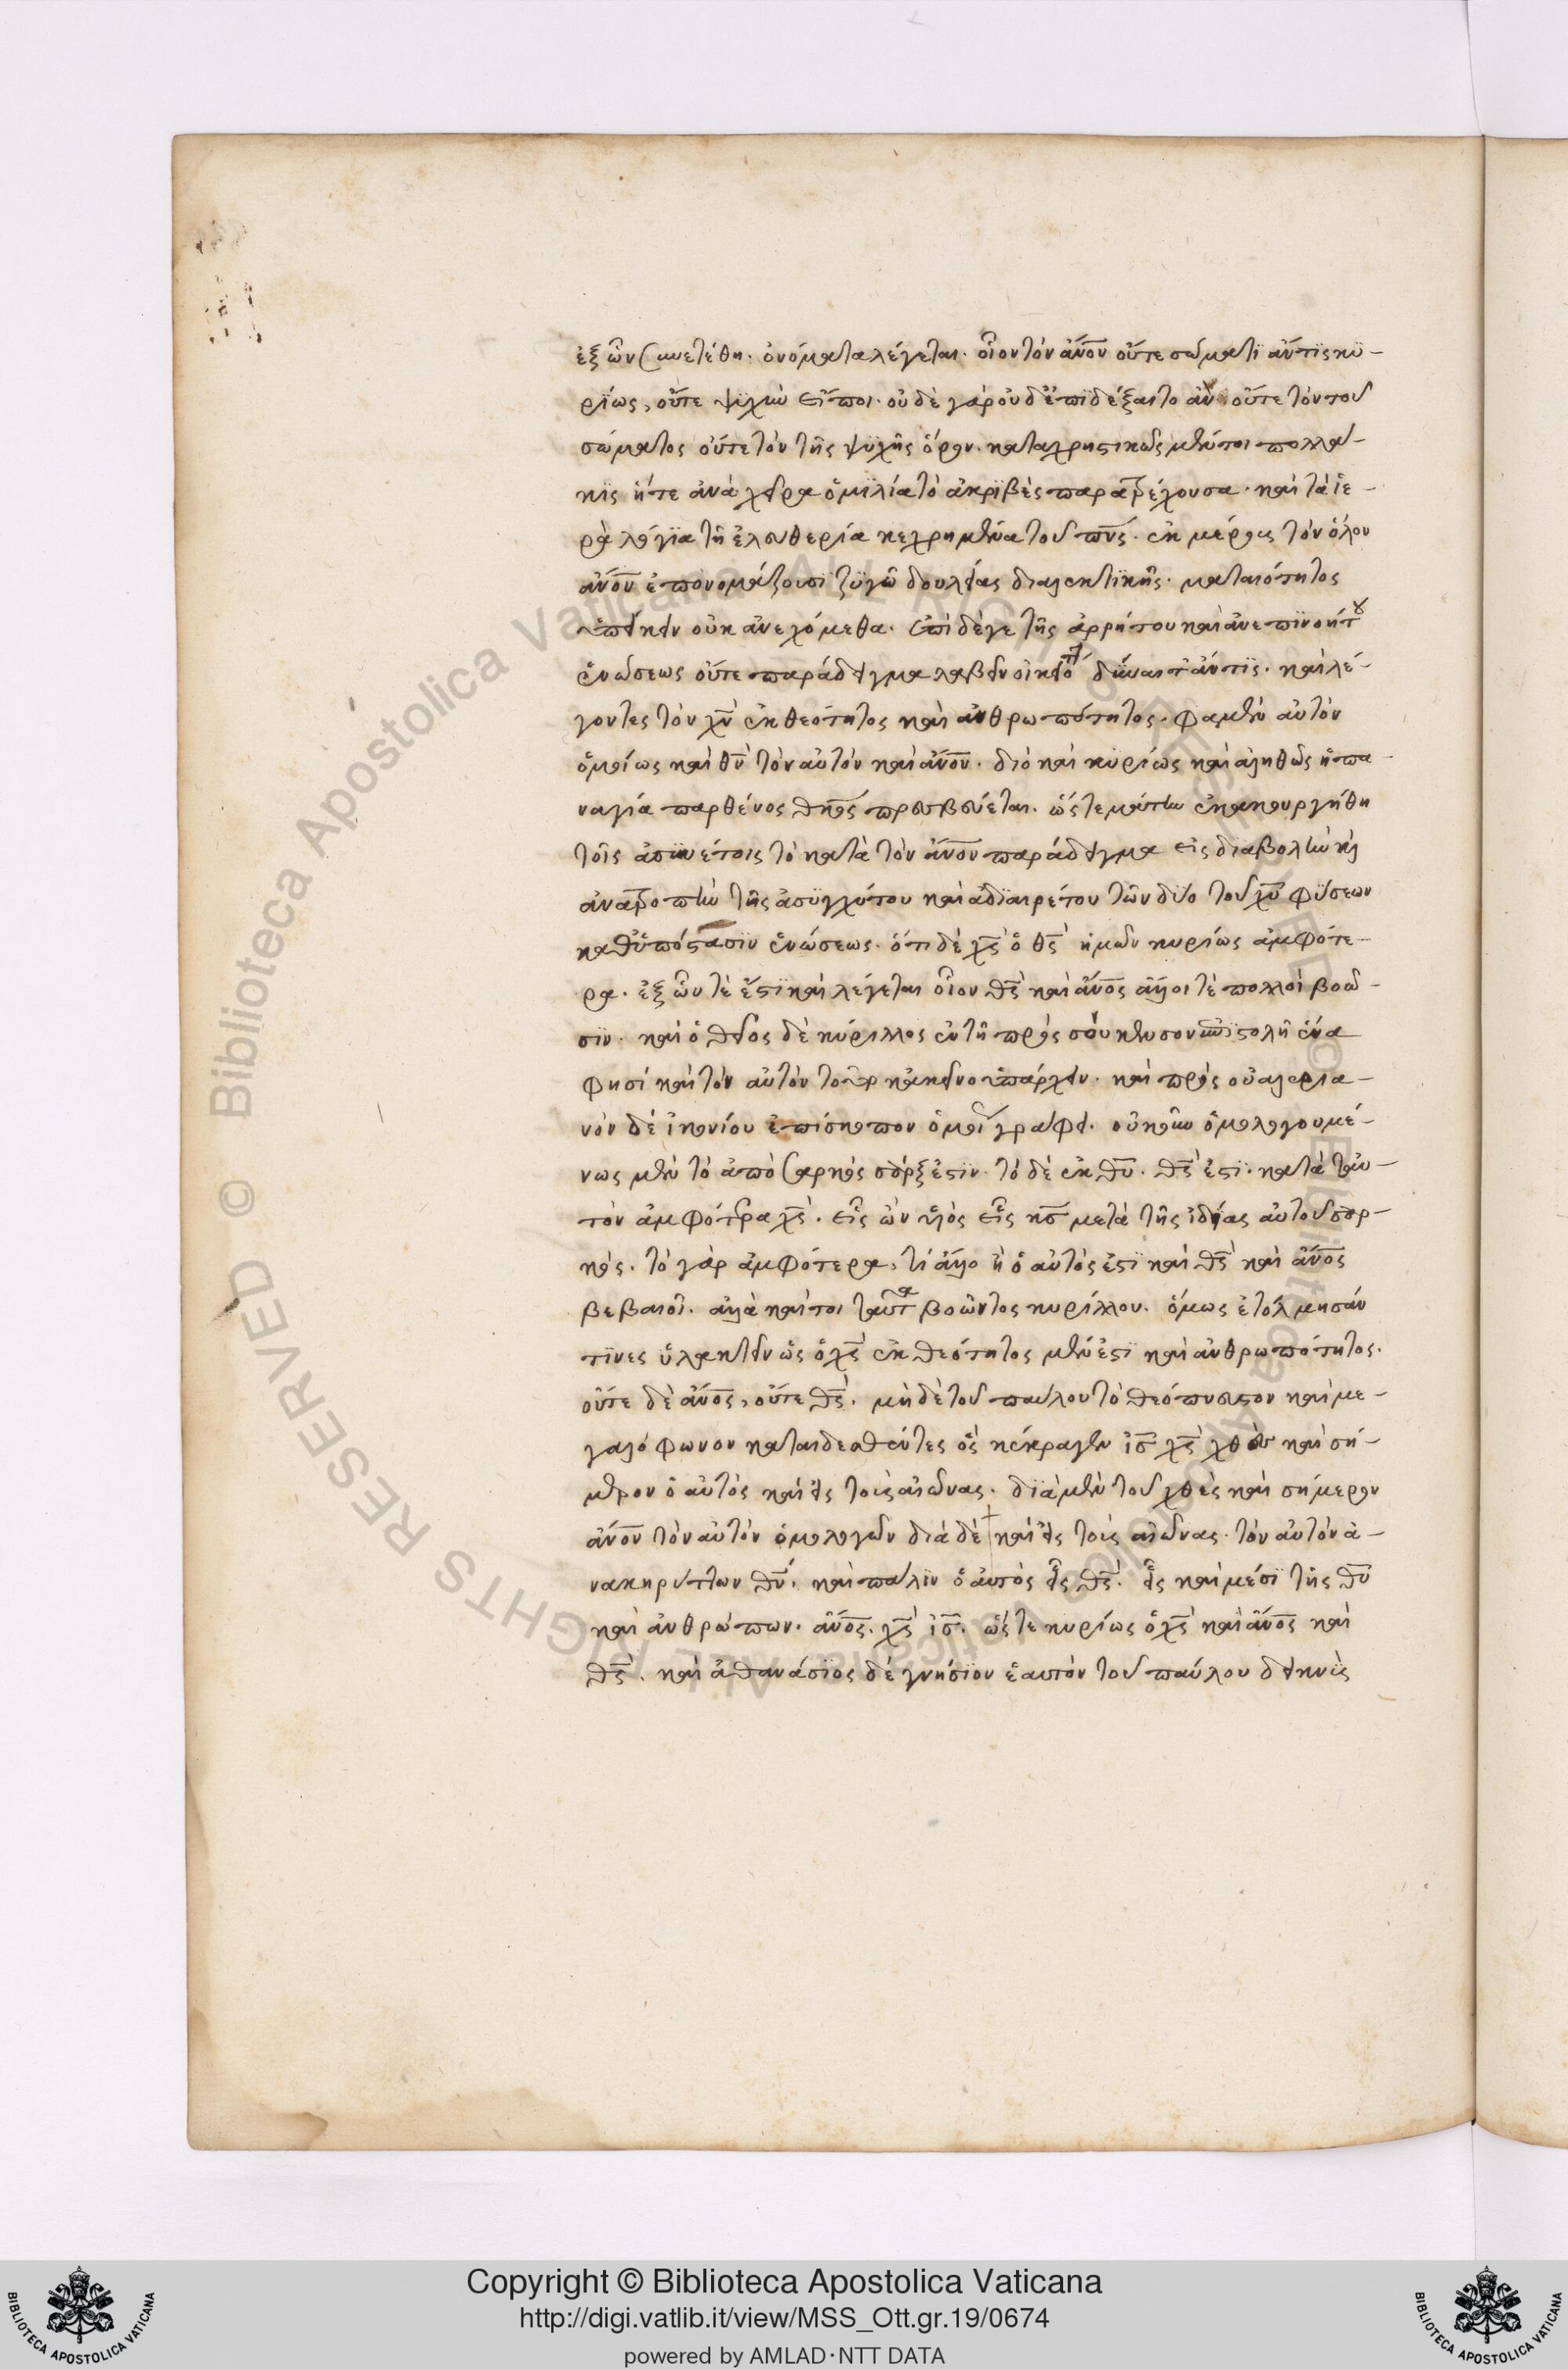 ἐξ ὧν συνετέθη. ὀνόματα λέγεται. οἷον τὸν ἄνον οὔτε σῶμα τϊ ἄν τϊς κϋ-
ρΐως, οὔτε ψυχὴν εἴποι. οὐδὲ γὰρ οὐδ' ἐπϊδέξαιτο ἂν οὔτε τὸν τοῦ
σώματος οὔτε τὸν τῆς ψυχῆς ὅρον. καταχρηστικῶς μέντοι πολλά-
κϊς ἥτε ἀνὰ χεῖρα ὁμιλία τὸ ἀκριβὲς παρατρέχουσα. καὶ τὰ ἱε-
ρὰ λόγϊα τῇ ἐλευθερία κεχρημένα τοῦ πνς. ἐκ μέρους τὸν ὅλον
ἄνον ἐπονομάζουσϊ ζϋγῶ δουλείας διαλεκτϊκῆς. ματαιότητος
ὑπείκειν οὐκ ἀνεχόμεθα. ἐπὶ δέ γε τῆς ἀρρήτου καὶ ἀνεπϊνοήτου
ἑνώσεως οὔτε παράδειγμα λαβεῖν οἰκεῖον δύναιτ' ἄν τϊς. καὶ λέ-
γοντες τὸν χν ἐκ θεότητος καὶ ἀνθρωπότητος. φαμὲν αὐτὸν
ὁμοίως καὶ θν τὸν αὐτὸν καὶ ἄνον. διὸ καὶ κυρίως καὶ ἀληθῶς ἡ πα-
ναγία παρθένος θκος πρεσβεύεται. ὥστε μάτην ἐκακουργήθη
τοῖς ἀσυνέτοις τὸ κατὰ τὸν ἄνον παράδειγμα εἰς διαβολὴν κὶ
ἀνατροπὴν τῆς ἀσϋγχύτου καὶ ἀδϊαιρέτου τῶν δύο τοῦ χυ φύσεων
καθ' ὑπόστασϊν ἑνώσεως. ὅτι δὲ χς ὁ θς ἡμῶν κυρίως ἀμφότε-
ρα. ἐξ ὧν τὲ ἔστϊ καὶ λέγεται οἷον θς καὶ ἄνος ἄλλοι τὲ πολλοὶ βοῶ-
σϊν. καὶ ὁ θεῖος δὲ κύριλλος ἐν τῇ πρὸς σούκενσον ἐπιστολῇ ἕνα
φησὶ καὶ τὸν αὐτὸν τοῦτο κἀκεῖνο ὑπάρχειν. καὶ πρὸς οὐαλερια-
νὸν δὲ ἰκονίου ἐπίσκοπον ὁμοί γράφει. οὐκοῦν ὁμολογουμέ-
νως μὲν τὸ ἀπὸ σαρκὸς σάρξ ἐστϊν. τὸ δὲ ἐκ θυ. θς ἐστϊ. κατὰ ταυ-
τὸν ἀμφότερα χς. εἷς ὢν υἱὸς εἷς κς μετὰ τῆς ἰδίας αὐτοῦ σαρ-
κὸς. τὸ γὰρ ἀμφότερα, τί ἄλλο ἢ ὁ αὐτὸς ἐστϊ καὶ θς καὶ ἄνος
βεβαιοῖ. ἀλλὰ καίτοι ταῦτα βοῶντος κυρίλλου. ὅμως ἐτόλμησάν
τϊνες ὑλακτεῖν ὡς ὁ χς ἐκ θεότητος μὲν ἐστϊ καὶ ἀνθρωπότητος.
οὔτε δὲ ἄνος, οὔτε θς. μὴ δὲ τοῦ παύλου τὸ θεόπνευστον καὶ με-
γαλόφωνον καταιδεσθέντες ὃς κέκραγεν ἰς χς χθὲς καὶ σή-
μερον ὁ αὐτὸς καὶ εἰς τοὺς αἰῶνας. δϊὰ μὲν τοῦ χθὲς καὶ σήμερον
ἄνον τὸν αὐτὸν ὁμολογῶν διὰ δὲ καὶ εἰς τοὺς αἰῶνας. τὸν αὐτὸν ἀ-
νακηρύττων θν. καὶ πάλϊν ὁ αὐτὸς εἷς θς. εἷς καὶ μεσϊτης θυ
καὶ ἀνθρώπων. ἄνος. χς ἰς. ὥστε κυρίως ὁ χς καὶ ἄνος καὶ
θς. καὶ ἀθανάσϊος δὲ γνήσϊον ἑαυτὸν τοῦ παύλου δεικνὺς
Copyright © Biblioteca Apostolica Vaticana
http://digi.vatlib.it/view/MSS_Ott.gr.19/0674
powered by AMLAD·NTT DATA